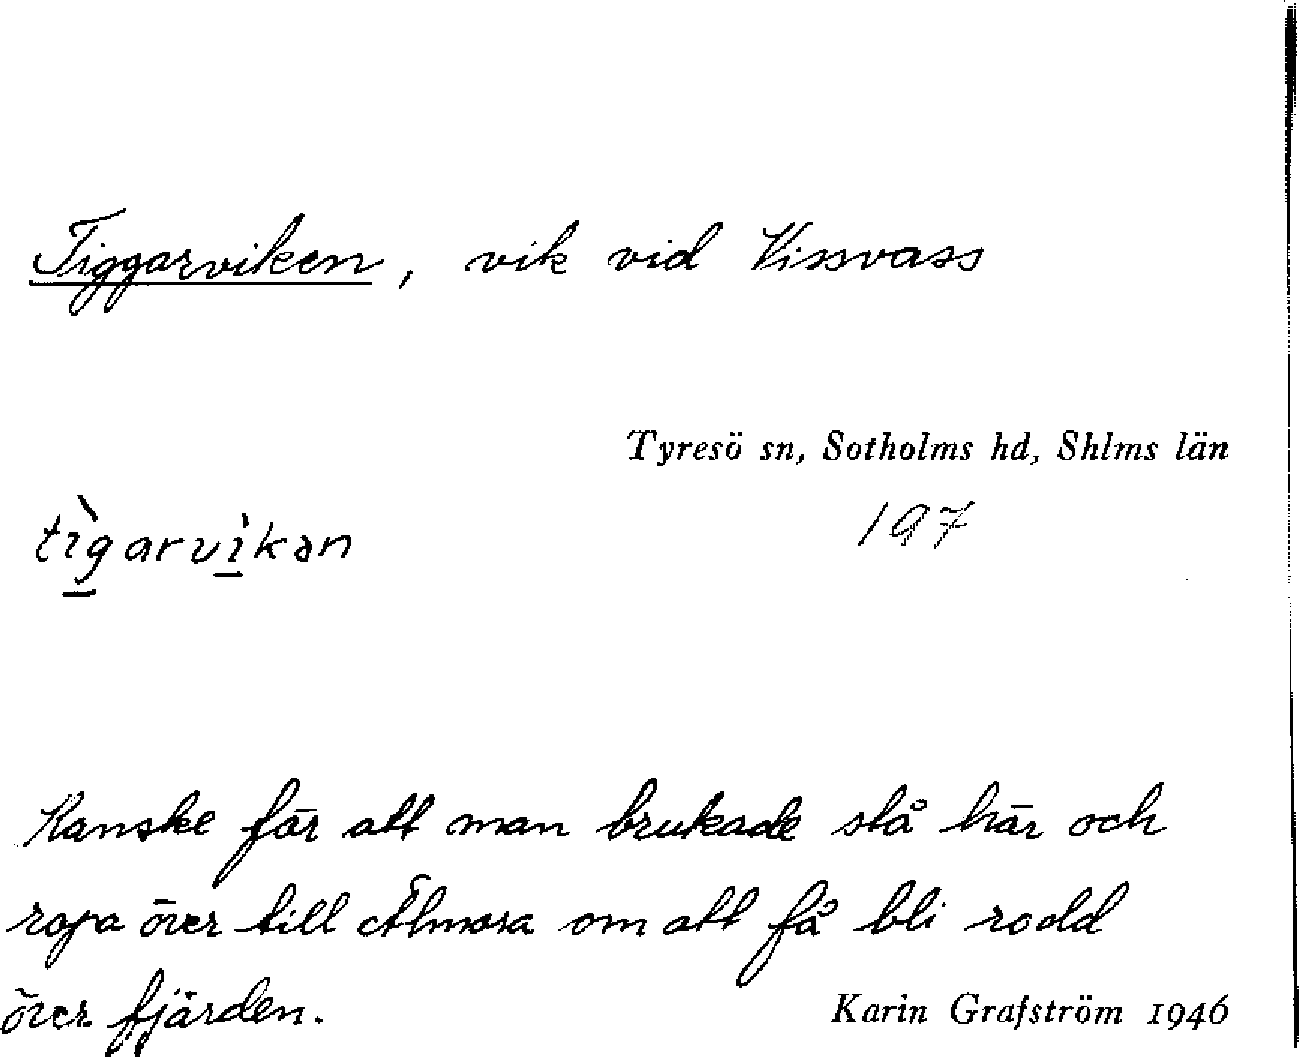 Tiggarviken, vik vid Vissvass
Tyresö sn, Sotholms hd, Shlms län
tìgarvìkən
197
Kanske för att man brukade stå här och
ropa över till Älmora om att få bli rodd
över fjärden.
Karin Grafström 1946